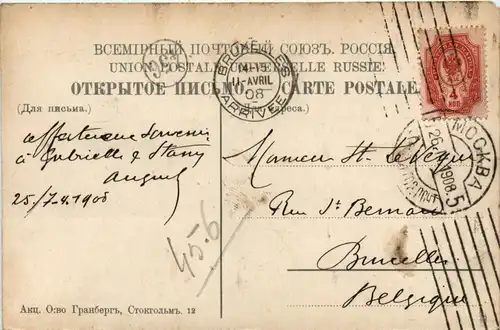 ВСЕМІРНЫЙ ПОЧТОВЫЙ СОЮЗЪ. РОССІЯ
UNION POSTALE UNIVERSELLE RUSSIE
ОТКРЫТОЕ ПИСЬМО. — CARTE POSTALE
BRUXELLES
11-AVRIL
08
ARRIVÉE
4
КОП
МОСКВА
1908
5
(Для письма.)
(Для адреса.)
affectueux souvenir
à Gabrielle & Stany
August
25/7-4.1908
Monsieur St.
Rue St Bernard
Bruxelles
Belgique
45-6
Акц. О-во Гранбергъ, Стокгольмъ. 12